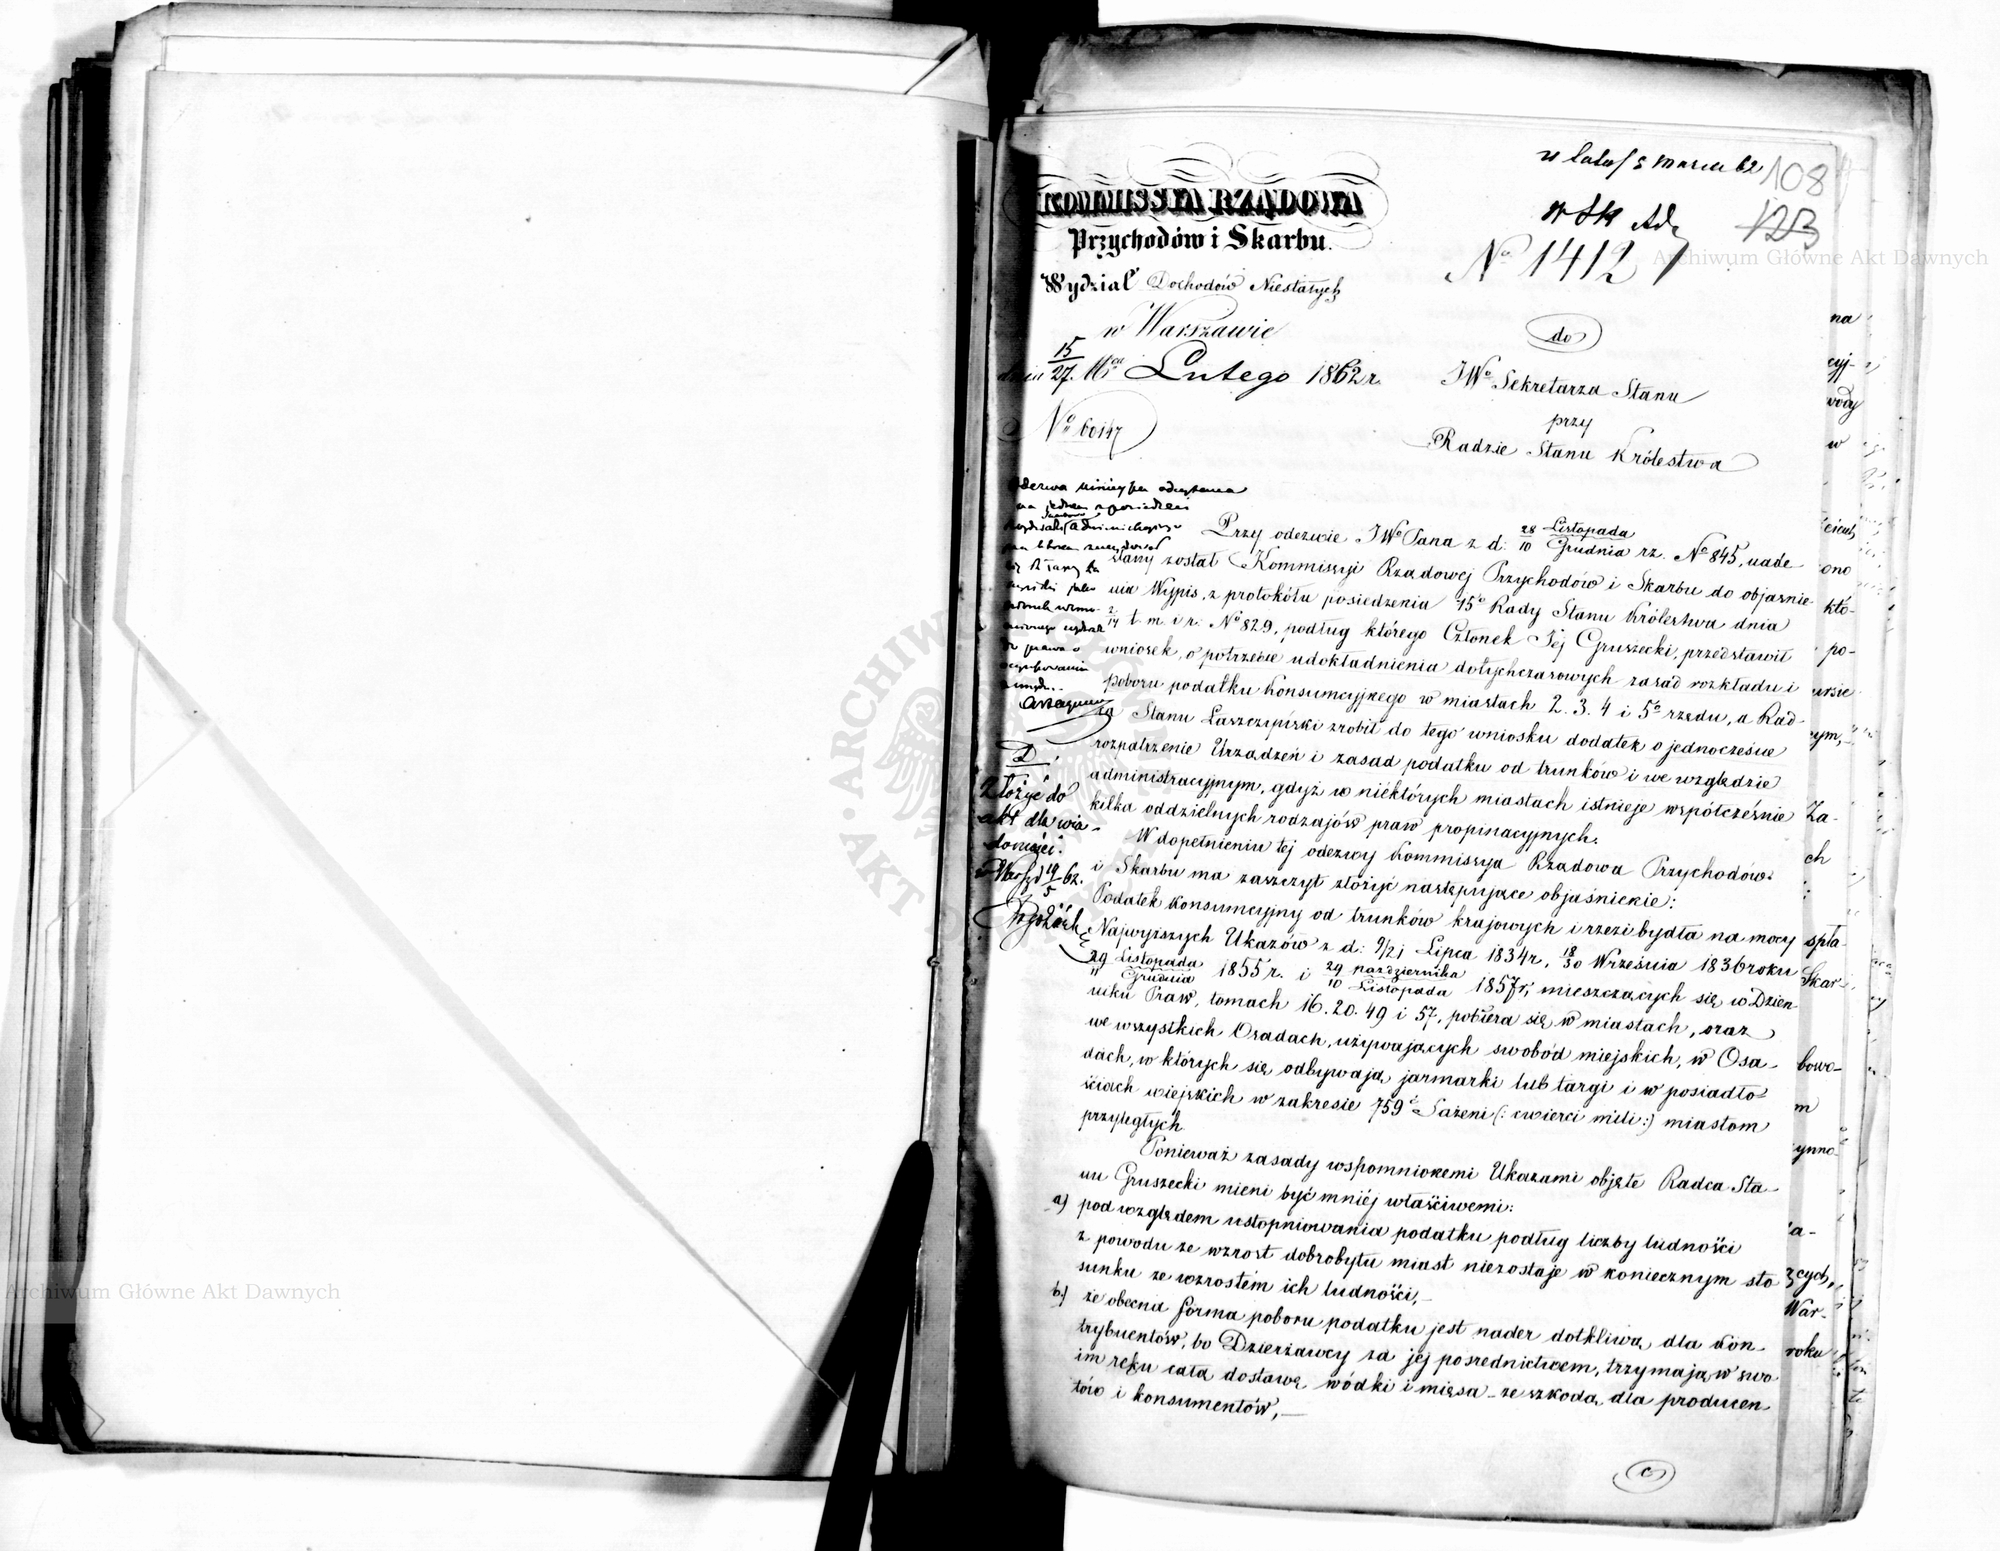 108
123
KOMMISSYA RZĄDOWA
Przychodów i Skarbu.
Wydział Dochodów Niestałych
w Warszawie
dnia 15/27. Mca Lutego 1862 r.
No 60147
No 1412
do
JWo Sekretarza Stanu
przy
Radzie Stanu Królestwa
Złożyć do
akt dla wia-
domości.
Przy odezwie JWo Pana z d: 28 Listopada/10 Grudnia rz. No 845, nade
słany został Kommissyi Rządowej Przychodów i Skarbu do objaśnie-
nia Wypis, z protokółu posiedzenia 15o Rady Stanu Królestwa dnia
2/14 t. m. i r. No 829, podług którego Członek Jej Gruszecki, przedstawił
wniosek, o potrzebie udokładnienia dotychczasowych zasad rozkładu i
poboru podatku Konsumcyjnego w miastach 2. 3. 4 i 5o rzędu, a Rad-
ca Stanu Łaszczyński zrobił do tego wniosku dodatek o jednoczesne
rozpatrzenie Urządzeń i zasad podatku od trunków i we względzie
administracyjnym, gdyż w niektórych miastach istnieje współcześnie
kilka oddzielnych rodzajów praw propinacyjnych.
W dopełnieniu tej odezwy Kommissya Rządowa Przychodów
i Skarbu ma zaszczyt złożyć następujące objaśnienie:
Podatek konsumcyjny od trunków krajowych i rzezi bydła na mocy
Najwyższych Ukazów z d: 9/21 Lipca 1834 r. 18/30 Września 1836 roku
29 Listopada/" Grudnia 1855 r. i 29 października/10 Listopada 1857 r., mieszczących się w Dzien-
niku Praw, tomach 16. 20. 49 i 57, pobiera się w miastach, oraz
we wszystkich Osadach, używających swobód miejskich, w Osa-
dach, w których się odbywają jarmarki lub targi i w posiadło-
ściach wiejskich w zakresie 759 Sażeni (: ćwierci mili :) miastom
przyległych
Ponieważ zasady wspomnionemi Ukazami objęte Radca Sta-
nu Gruszecki mieni być mniej właściwemi:
a) pod względem ustopniowania podatku podług liczby ludności
z powodu że wzrost dobrobytu miast niezostaje w koniecznym sto
sunku ze wzrostem ich ludności,-
b) że obecna forma poboru podatku jest nader dotkliwą dla kon-
trybuentów, bo Dzierżawcy za jej posrednictwem, trzymają w swo-
im ręku całą dostawę wódki i mięsa - ze szkodą dla producen-
tów i konsumentów,-
Archiwum Główne Akt Dawnych
Archiwum Główne Akt Dawnych